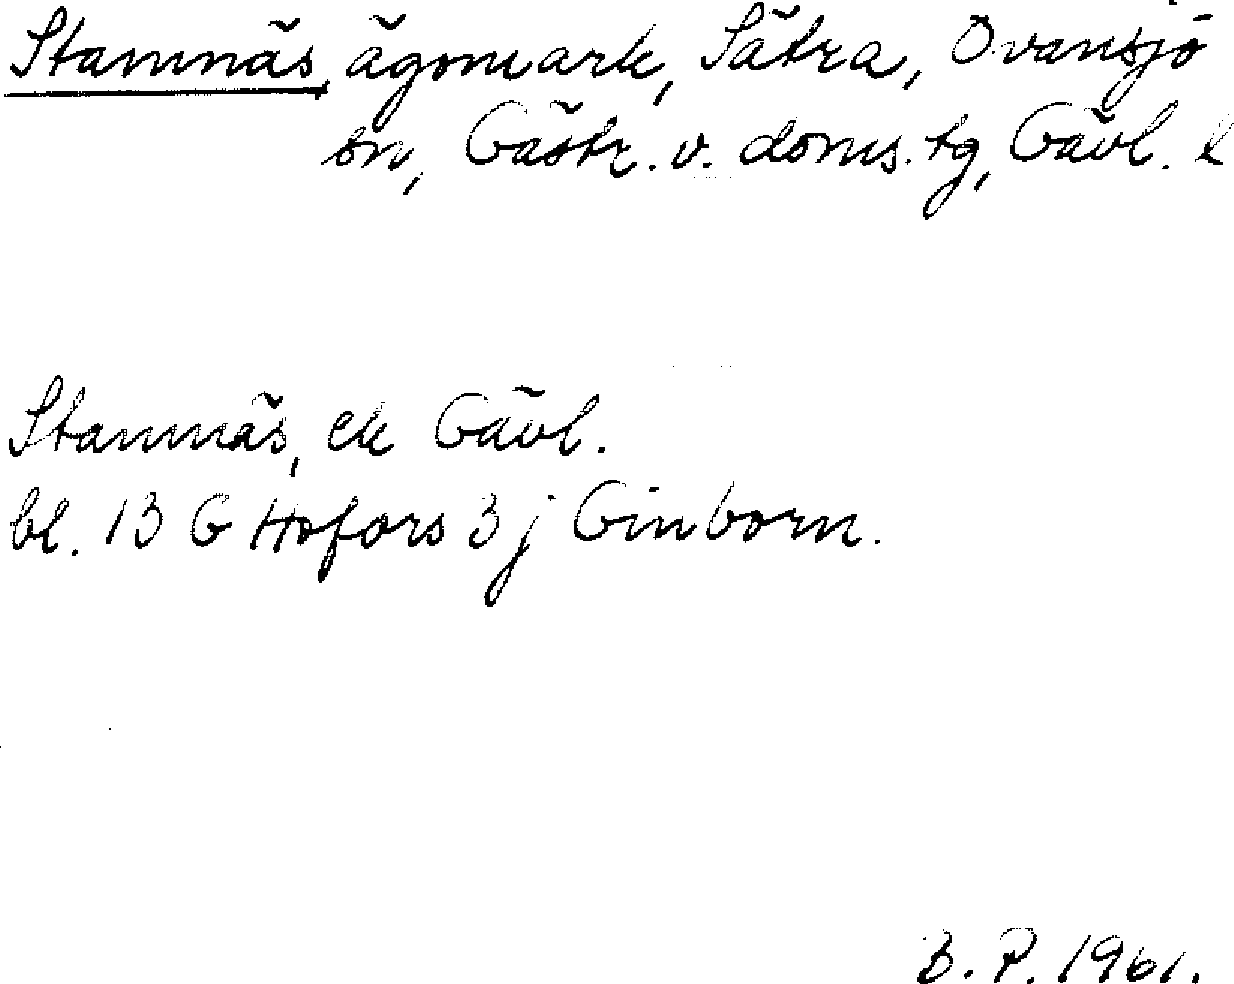 Stamnäs, ägomark, Sätra, Ovansjö
sn, Gästr. v. doms. tg, Gävl. l
Stamnäs, ek Gävl.
bl. 13 G Hofors 3 j Ginborn.
B. P. 1961.